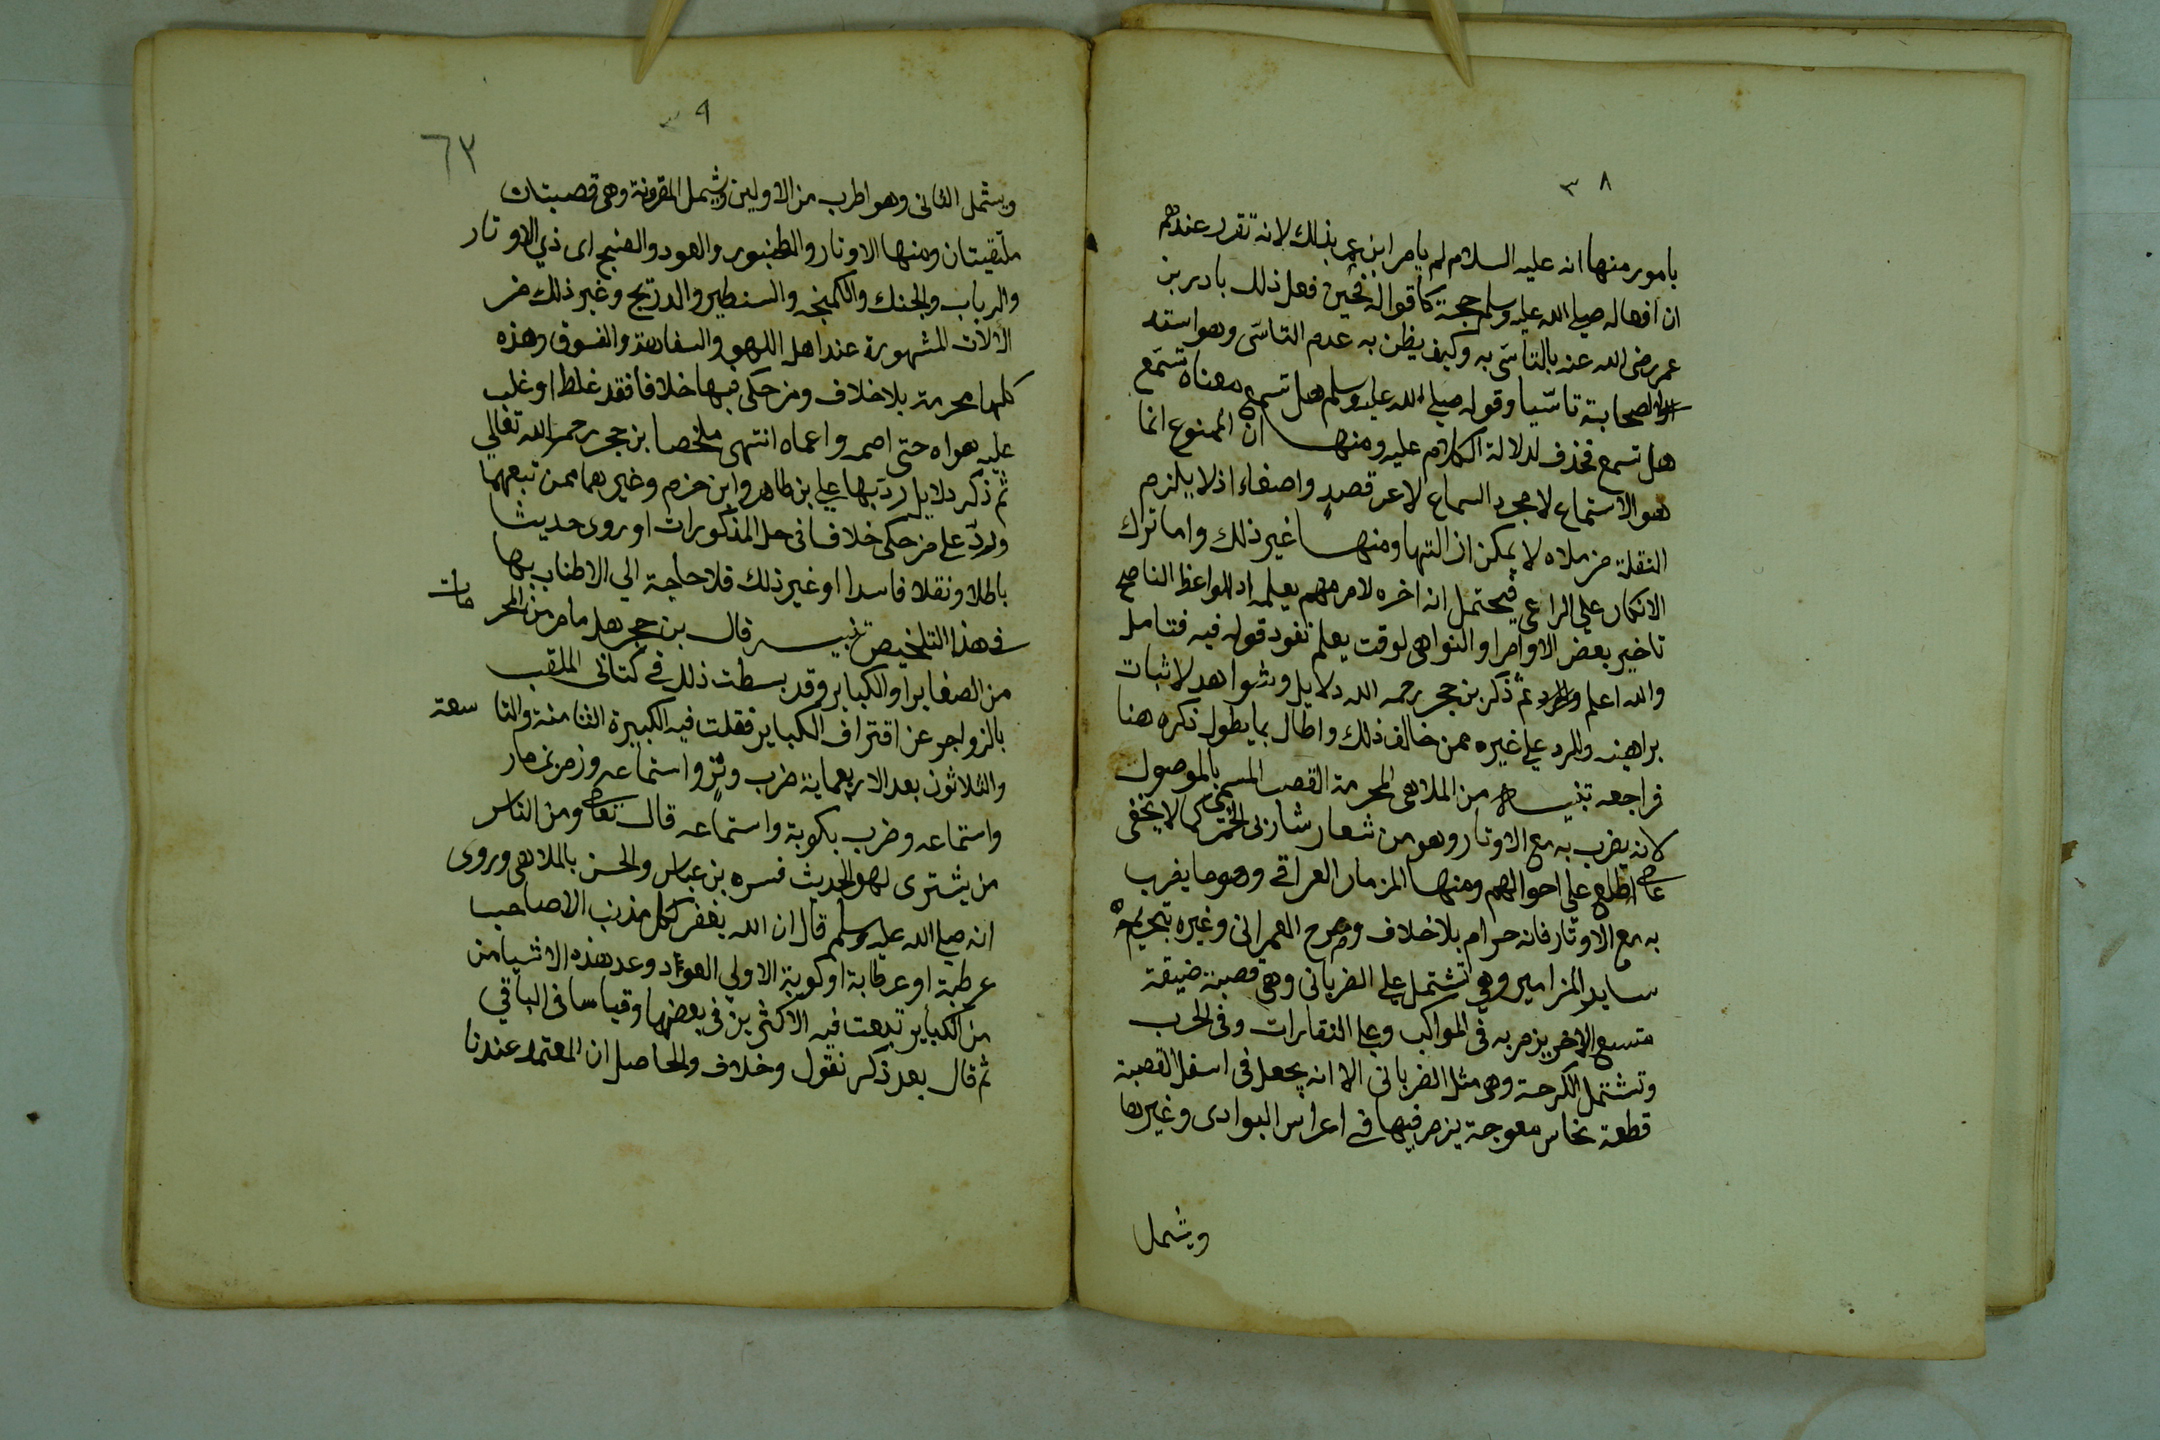 ٣٨
بامور منها انه عليه السلام لم يامر ابن عمر بذلك لانه تقرر عندهم
ان افعاله صلى الله عليه وسلم حجة كاقواله فحين فعل ذلك بادر بن
عمر رضى الله عنه بالتاسّى به وكيف يظن به عدم التاسّى وهو اشد
الصحابة تاسّيا وقوله صلى الله عليه وسلم هل تسمع معناه تسمّع
هل تسمع فحذف لدلالة الكلام عليه ومنها ان الممنوع انما
هو الاستماع لا مجرد السماع لا عن قصد واصغاء اذ لا يلزم
النقلة من ملاه لا يمكن ازالتها ومنها غير ذلك واما ترك
الانكار على الراعى فيحتمل انه اخره لامر مهم يعلمه اذ للواعظ الناصح
تاخير بعض الاوامر او النواهى لوقت يعلم نفوذ قوله فيه فتامل
والله اعلم ثم ذكر بن حجر رحمه الله دلايل وشواهد لاثبات
براهينه وللرد على غيره ممن خالف ذلك واطال بما يطول ذكره هنا
فراجعه تنبيه من الملاهى المحرمة القصب المسمى بالموصول
لانه يضرب به مع الاوتار وهو من شعار شاربى الخمر كما لا يخفى
على من اطلع على احوالهم ومنها المزمار العراقى وهو ما يضرب
به مع الاوتار فانه حرام بلا خلاف وصرح العمرانى وغيره بتحريمه
ساير المزامير وهى تشتمل على الضربانى وهى قصبة ضيقة
متسع الاخر يزمر به فى المواكب وعلى النقارات وفى الحرب
وتشتمل الكرحة وهى مثل الضربانى الا انه يجعل فى اسفل القصبة
قطعة نحاس معوجة يزمر فيها فى اعراس البوادى وغيرها
ويشمل
٣٩
٦٣
ويشمل الثانى وهو اطرب من الاولين ويشمل المقرونة وهى قصبتان
ملتقيتان ومنها الاوتار والطنبور والعود والصنج اى ذي الاوتار
والرباب والجنك والكمنجه والسنطير والدريج وغير ذلك من
الآلات المشهورة عند اهل اللهو والسفاهة والفسوق وهذه
كلها محرمة بلا خلاف ومن حكى فيها خلافا فقد غلط او غلب
عليه هواه حتى اصمه واعماه انتهى ملخصا بن حجر رحمه الله تعالي
ثم ذكر دلايل ردّ بها على ابن طاهر وابن حزم وغيرهما ممن تبعهما
ولردّ على من حكى خلافا فى حل المذكورات او روى حديثا
باطلا ونقلا فاسدا او غير ذلك فلا حاجة الي الاطناب بها
فى هذا التلخيص تنبيه قال بن حجر هل ما مر من المحرمات
من الصغاير او الكباير وقد بسطت ذلك فى كتابى الملقب
بالزواجر عن اقتراف الكباير فقلت فيه الكبيرة الثامنة والتاسعة
والثلاثون بعد الاربعماية ضرب وتر واستماعه وزمر بمزمار
واستماعه وضرب بكوبة واستماعه قال تعالى ومن الناس
من يشترى لهو الحديث فسره بن عباس والحسن بالملاهى وروى
انه صلى الله عليه وسلم قال ان الله يغفر لكل مذنب الا صاحب
عرطبة او عرطابة او كوبة الاولي العود وعد هذه الاشيا من
من الكباير تبعت فيه الاكثرين فى بعضها وقياسا فى الباقي
ثم قال بعد ذكر نقول وخلاف والحاصل ان المعتمد عندنا